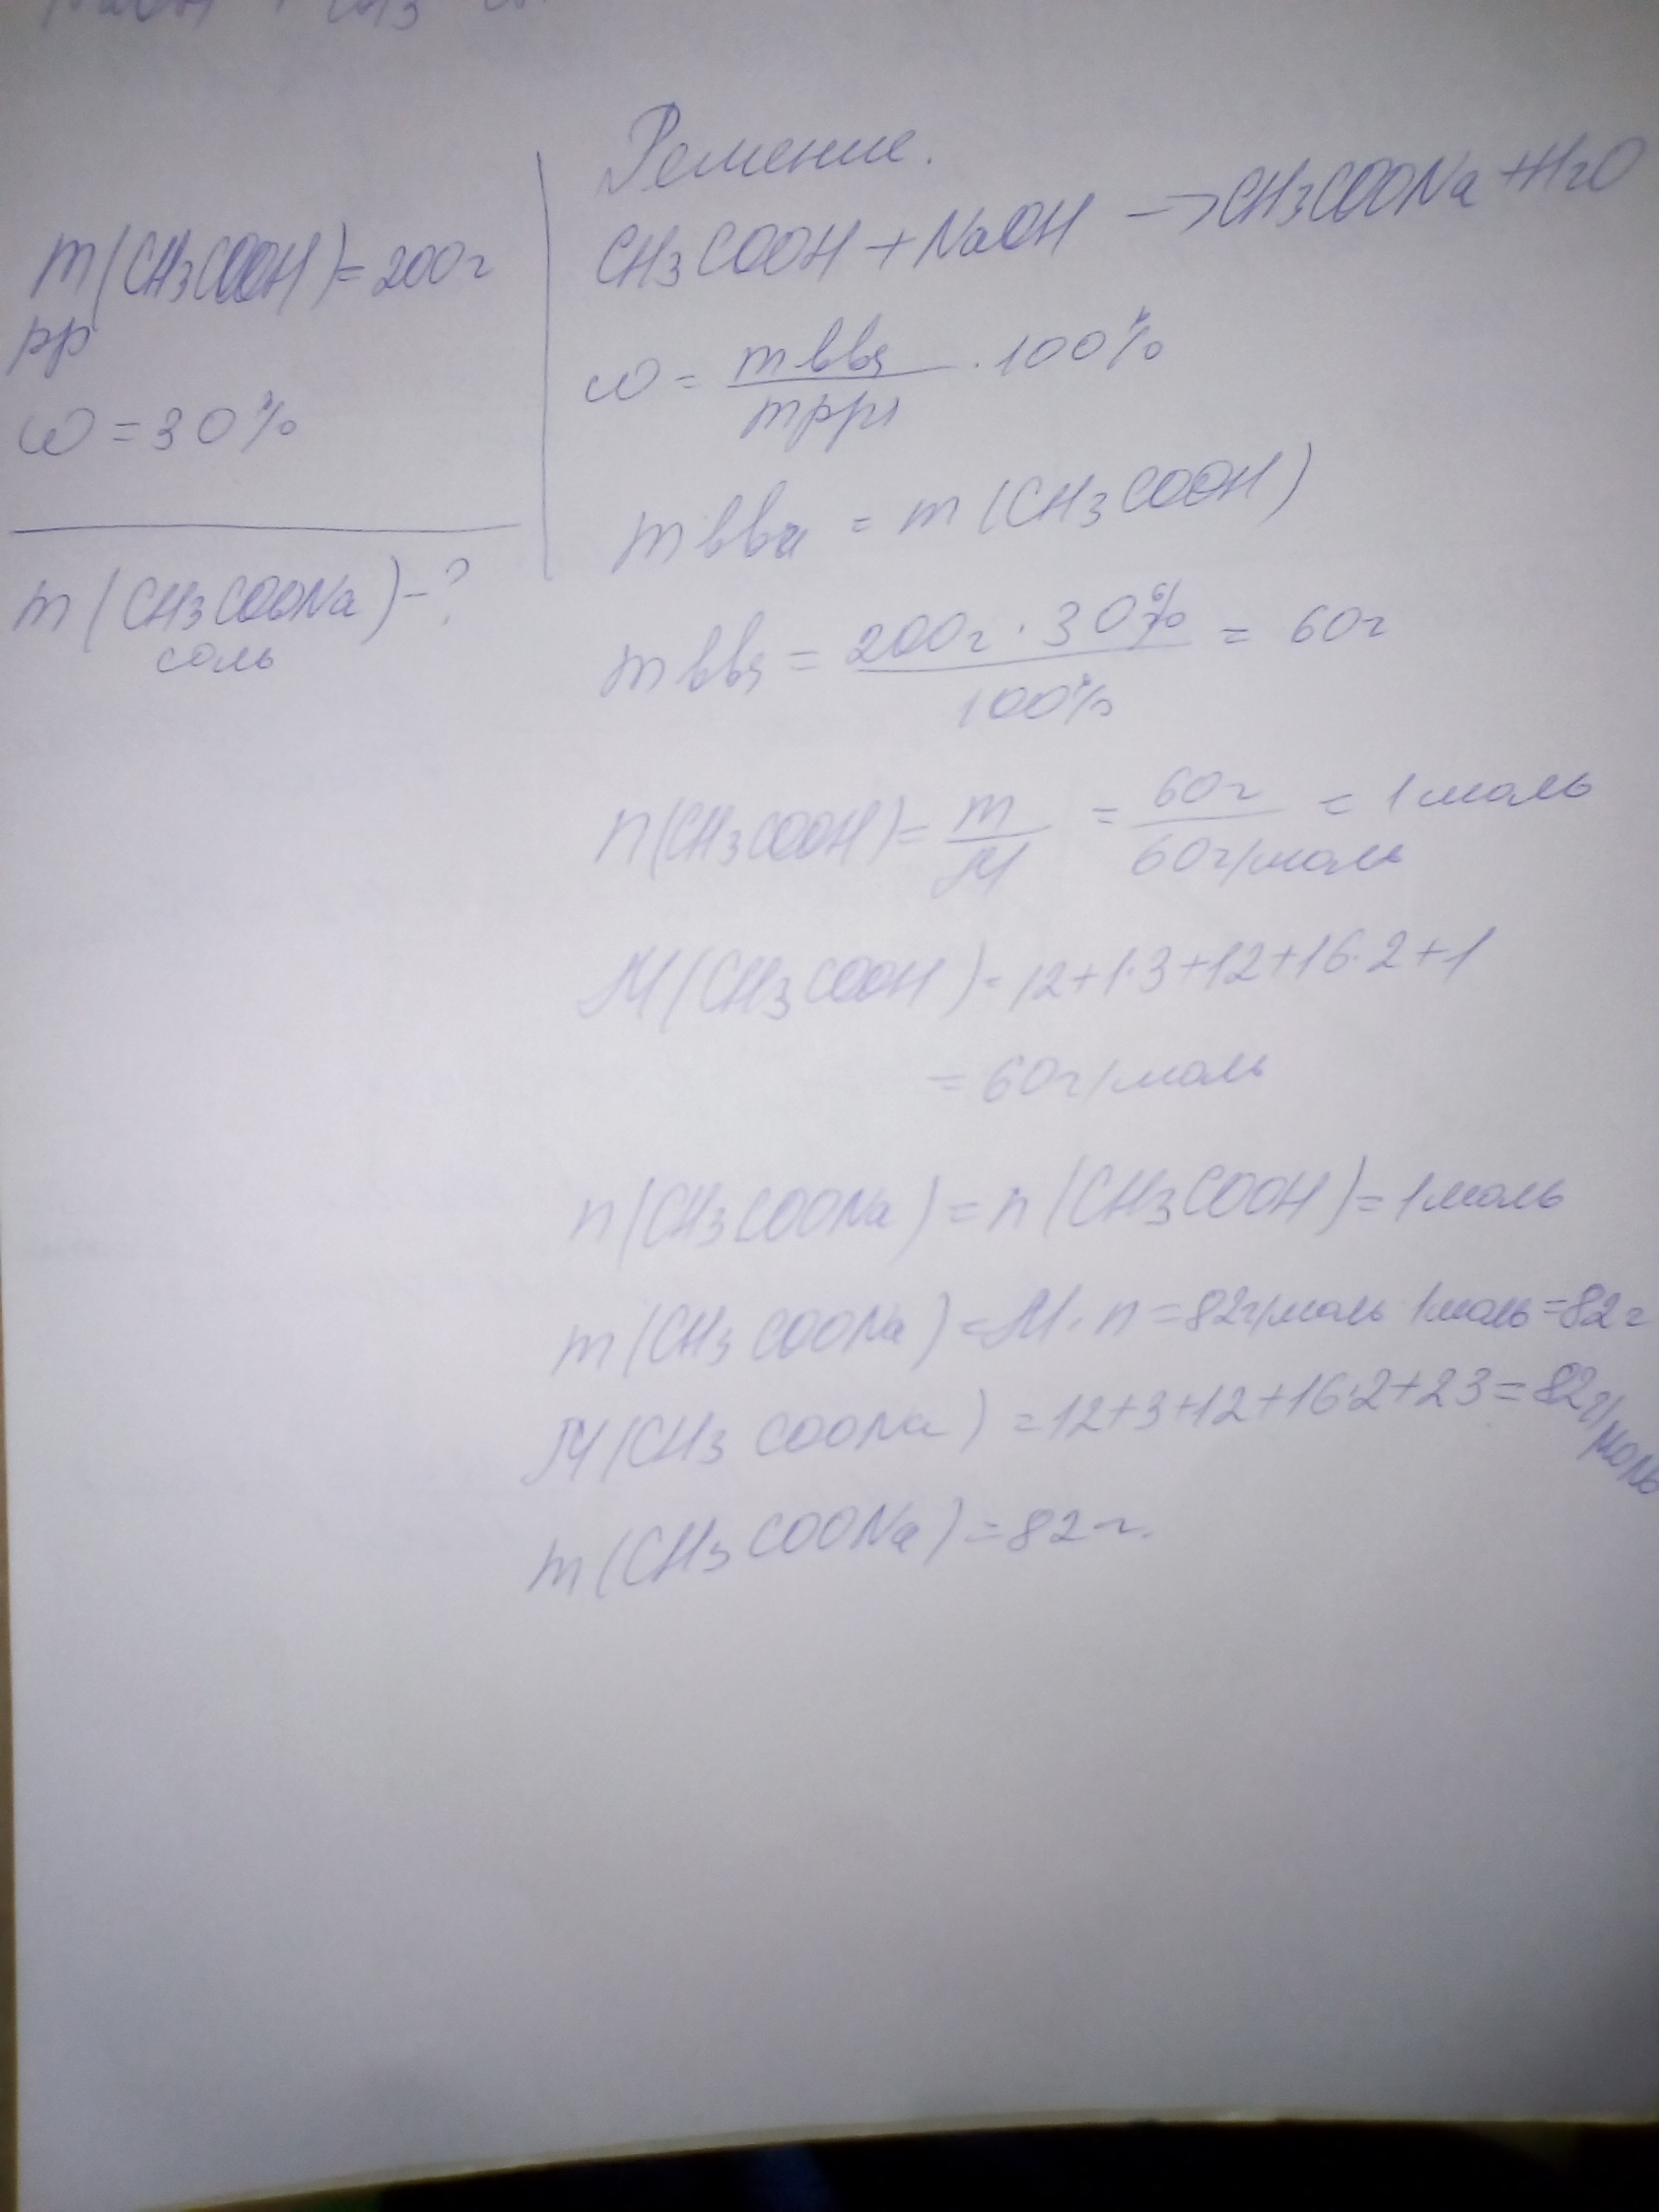 m(CH3COOH)=200г
рр
ω=30%
m(CH3COONa)-?
соль
Решение.
CH3COOH+NaOH->CH3COONa+H2O
ω = mвва/mрра · 100%
mвва = m(CH3COOH)
mвва = 200г · 30%/100% = 60г
n(CH3COOH)= m/M = 60г/60г/моль = 1 моль
M(CH3COOH)=12+1·3+12+16·2+1
=60г/моль
n(CH3COONa)=n(CH3COOH)=1моль
m(CH3COONa)=M·n=82г/моль·1моль=82г
M(CH3COONa)=12+3+12+16·2+23=82г/моль
m(CH3COONa)=82г.